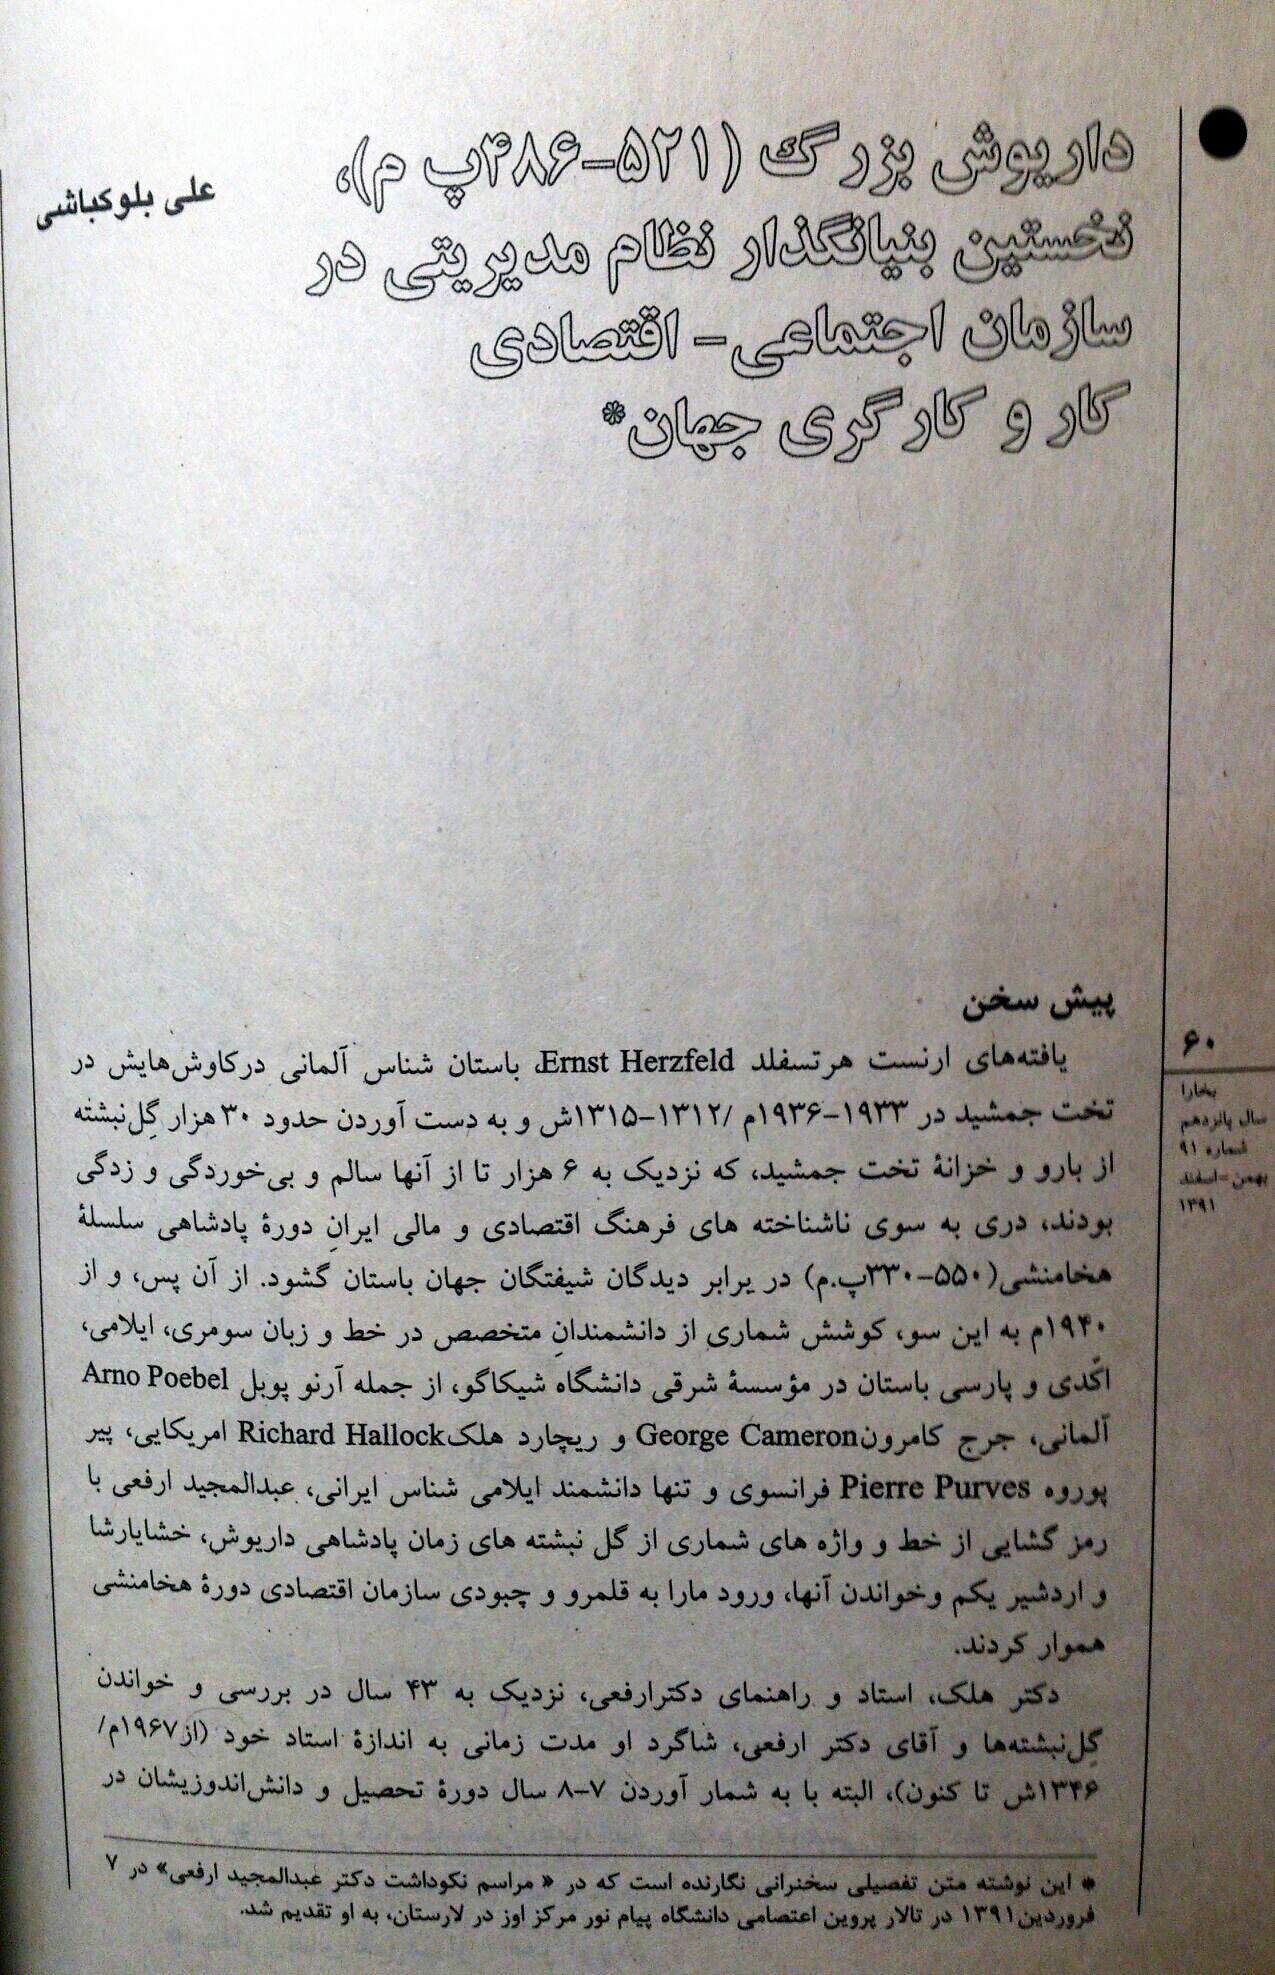 داریوش بزرگ (۵۲۱-۴۸۶پ م)،
نخستین بنیانگذار نظام مدیریتی در
سازمان اجتماعی- اقتصادی
کار و کارگری جهان*
علی بلوکباشی
پیش سخن
یافته‌های ارنست هرتسفلد Ernst Herzfeld، باستان شناس آلمانی درکاوش‌هایش در
تخت جمشید در ۱۹۳۳-۱۹۳۶م /۱۳۱۲-۱۳۱۵ش و به دست آوردن حدود ۳۰ هزار گِل‌نبشته
از بارو و خزانهٔ تخت جمشید، که نزدیک به ۶ هزار تا از آنها سالم و بی‌خوردگی و زدگی
بودند، دری به سوی ناشناخته های فرهنگ اقتصادی و مالی ایرانِ دورهٔ پادشاهی سلسلهٔ
هخامنشی(۵۵۰-۳۳۰پ.م) در برابر دیدگان شیفتگان جهان باستان گشود. از آن پس، و از
۱۹۴۰م به این سو، کوشش شماری از دانشمندانِ متخصص در خط و زبان سومری، ایلامی،
اکّدی و پارسی باستان در مؤسسهٔ شرقی دانشگاه شیکاگو، از جمله آرنو پوبل Arno Poebel
آلمانی، جرج کامرونGeorge Cameron و ریچارد هلکRichard Hallock امریکایی، پیر
پوروه Pierre Purves فرانسوی و تنها دانشمند ایلامی شناس ایرانی، عبدالمجید ارفعی با
رمز گشایی از خط و واژه های شماری از گل نبشته های زمان پادشاهی داریوش، خشایارشا
و اردشیر یکم وخواندن آنها، ورود مارا به قلمرو و چبودی سازمان اقتصادی دورهٔ هخامنشی
هموار کردند.
دکتر هلک، استاد و راهنمای دکترارفعی، نزدیک به ۴۳ سال در بررسی و خواندن
گِل‌نبشته‌ها و آقای دکتر ارفعی، شاگرد او مدت زمانی به اندازهٔ استاد خود (از۱۹۶۷م/
۱۳۴۶ش تا کنون)، البته با به شمار آوردن ۷-۸ سال دورهٔ تحصیل و دانش‌اندوزیشان در
* این نوشته متن تفصیلی سخنرانی نگارنده است که در « مراسم نکوداشت دکتر عبدالمجید ارفعی» در ۷
فروردین۱۳۹۱ در تالار پروین اعتصامی دانشگاه پیام نور مرکز اوز در لارستان، به او تقدیم شد.
۶۰
بخارا
سال پانزدهم
شماره ۹۱
بهمن -اسفند
۱۳۹۱